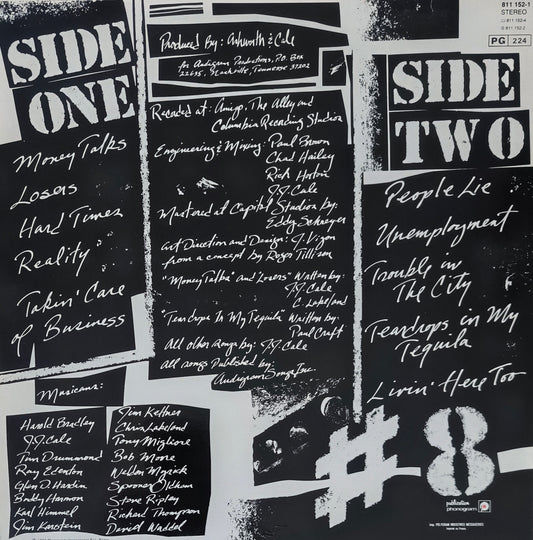 SIDE
ONE
Money Talks
Losers
Hard Times
Reality
Takin' Care
of Business
Produced By: Ashworth & Cale
for Audigram Productions, P.O. Box
22635, Nashville, Tennessee 37202
Recorded at: Amigo, The Alley and
Columbia Recording Studios
Engineering & Mixing: Paul Brown
Chad Hailey
Rick Horton
J.J. Cale
Mastered at Capitol Studios by:
Eddy Schreyer
Art Direction and Design: J. Vigon
from a concept by Roger Tillison
"Money Talks" and Losers Written by:
J.J. Cale
C. Lakeland
"Teardrops In My Tequila" Written by:
Paul Craft
All other songs by: J.J. Cale
All songs Published by:
Audigram Songs Inc.
811 152-1
STEREO
811 152-4
811 152-2
PG 224
SIDE
TWO
People Lie
Unemployment
Trouble in
The City
Teardrops in My
Tequila
Livin' Here Too
Musicians:
Harold Bradley
J.J. Cale
Tim Drummond
Ray Edenton
Glen D. Hardin
Buddy Harmon
Karl Himmel
Jim Karstein
Jim Keltner
Chris Lakeland
Tony Migliore
Bob Moore
Weldon Myrick
Spooner Oldham
Steve Ripley
Richard Thompson
David Waddel
#8
publication
phonogram